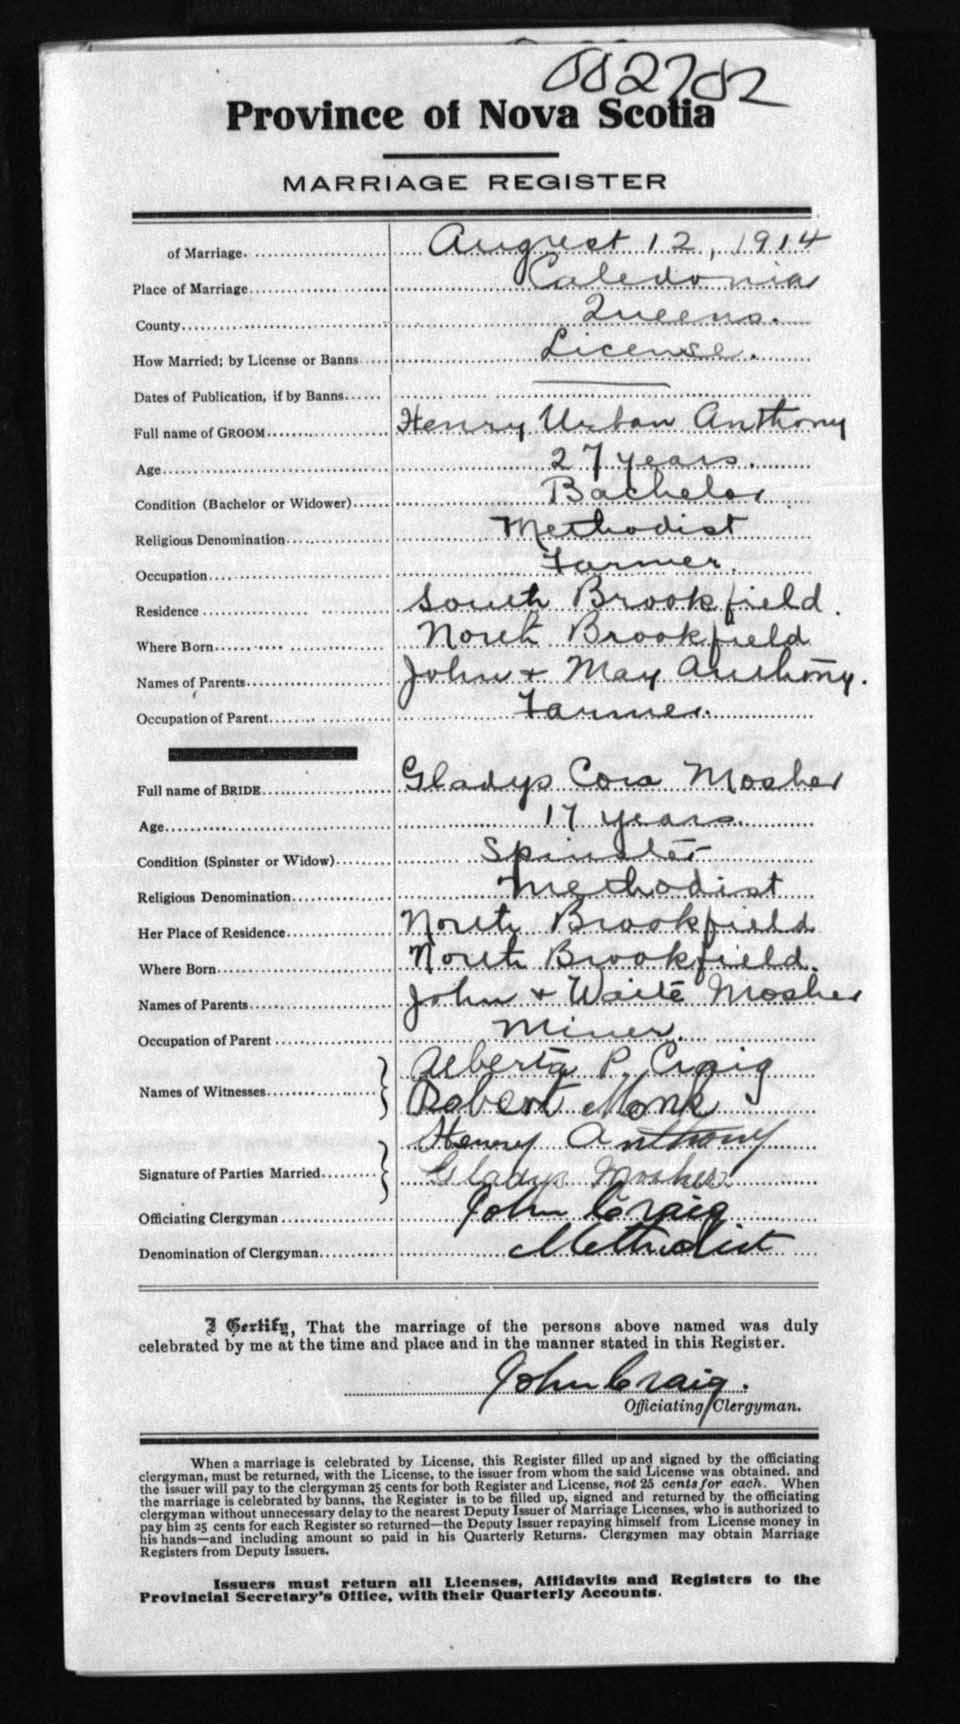 002702
Province of Nova Scotia
MARRIAGE REGISTER
of Marriage. August 12, 1914
Place of Marriage Caledonia
County Queens.
How Married; by License or Banns License.
Dates of Publication, if by Banns
Full name of GROOM Henry Urban Anthony
Age 27 years.
Condition (Bachelor or Widower) Bachelor
Religious Denomination Methodist
Occupation Farmer.
Residence South Brookfield.
Where Born North Brookfield
Names of Parents John + May Anthony.
Occupation of Parent Farmer.
Full name of BRIDE Gladys Cora Mosher
Age 17 years.
Condition (Spinster or Widow) Spinster
Religious Denomination Methodist
Her Place of Residence North Brookfield
Where Born North Brookfield.
Names of Parents John + Waite Mosher
Occupation of Parent Miner.
Names of Witnesses Alberta P. Craig
Robert Monk
Signature of Parties Married Henry Anthony
Gladys Mosher
Officiating Clergyman John Craig
Denomination of Clergyman Methodist
I Certify, That the marriage of the persons above named was duly
celebrated by me at the time and place and in the manner stated in this Register.
John Craig.
Officiating Clergyman.
When a marriage is celebrated by License, this Register filled up and signed by the officiating
clergyman, must be returned, with the License, to the issuer from whom the said License was obtained, and
the issuer will pay to the clergyman 25 cents for both Register and License, not 25 cents for each. When
the marriage is celebrated by banns, the Register is to be filled up, signed and returned by the officiating
clergyman without unnecessary delay to the nearest Deputy Issuer of Marriage Licenses, who is authorized to
pay him 25 cents for each Register so returned—the Deputy Issuer repaying himself from License money in
his hands—and including amount so paid in his Quarterly Returns. Clergymen may obtain Marriage
Registers from Deputy Issuers.
Issuers must return all Licenses, Affidavits and Registers to the
Provincial Secretary's Office, with their Quarterly Accounts.